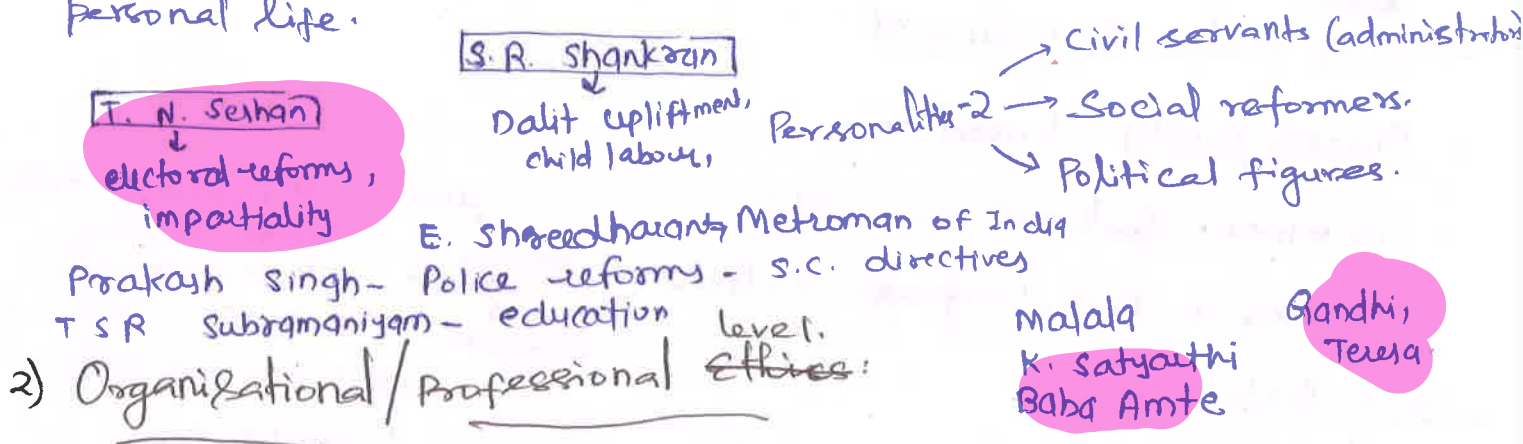 personal life.
S. R. Shankran
T. N. Seshan
Dalit upliftment,
child labour,
electoral reforms,
impartiality
Personalities-2
Civil servants (administrators)
Social reformers.
Political figures.
E. Shreedharan → Metroman of India
Prakash Singh - Police reforms - S.C. directives
T S R Subramaniyam - education
Malala
K. Satyarthi
Baba Amte
Gandhi,
Teresa
level.
2) Organisational / Professional Ethics: